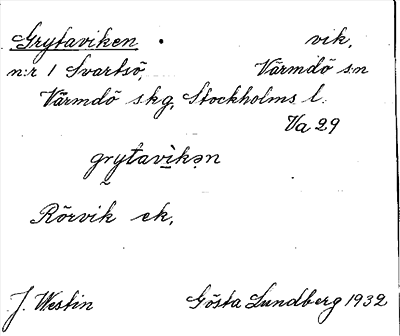 Grytaviken . vik,
n:r 1 Svartsö, Värmdö s:n
Värmdö skg, Stockholms l.
Va 29
grytavìkən
Rörvik ek,
J. Westin Gösta Lundberg 1932